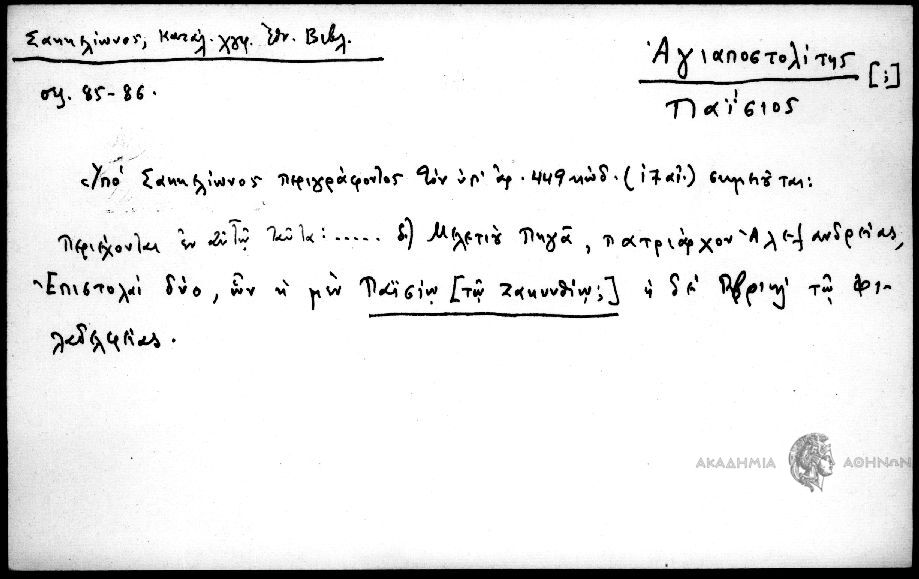 Σακκελίωνος, Κατάλ. χγφ. Ἐθν. Βιβλ.
σελ. 85-86.
Ἁγιαποστολίτης [;]
Παΐσιος
Ὑπό Σακκελίωνος περιγράφοντος τόν ὑπ' ἀρ. 449 κώδ. (17 αἰ.) σημειοῦται:
Περιέχονται ἐν αὐτῷ ταῦτα: ..... δ) Μελετίου Πηγᾶ, πατριάρχου Ἀλεξανδρείας,
Ἐπιστολαί δύο, ὧν ἡ μέν Παϊσίῳ [τῷ Ζακυνθίῳ;] ἡ δέ Γαβριήλ τῷ Φι-
λαδελφείας.
ΑΚΑΔΗΜΙΑ ΑΘΗΝΩΝ